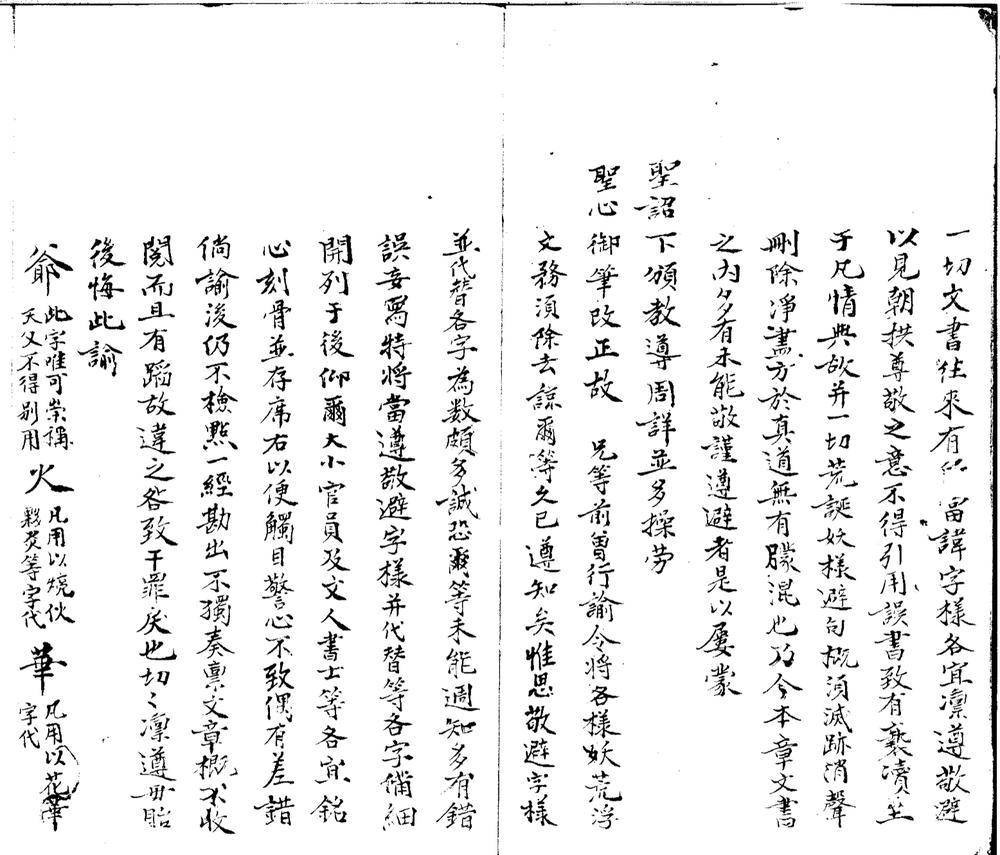 一切文書往來有 當諱字樣各宜凜遵敬避
以見朝拱尊敬之意不得引用誤書致有褻瀆至
于凡情典故并一切荒誕妖樣避句概須滅跡消聲
刪除淨盡方於真道無有朦混也乃今本章文書
之內多有未能敬謹遵避者是以屢蒙
聖詔下頒教導周詳並多操勞
聖心御筆改正故 兄等前曾行諭令將各樣妖荒浮
文務須除去諒爾等久已遵知矣惟思敬避字樣
並代替各字為數頗多誠恐爾等未能週知多有錯
誤妄寫特將當遵敬避字樣并代替等各字備細
開列于後仰爾大小官員及文人書士等各宜銘
心刻骨並存席右以便觸目警心不致偶有差錯
倘諭後仍不檢點一經勘出不獨奏稟文章概不收
閱而且有蹈故違之咎致干罪戾也切〻凜遵毋貽
後悔此諭
爺 此字唯可崇稱天父不得別用 火 凡用以燒伙夥炎等字代 華 凡用以花字代